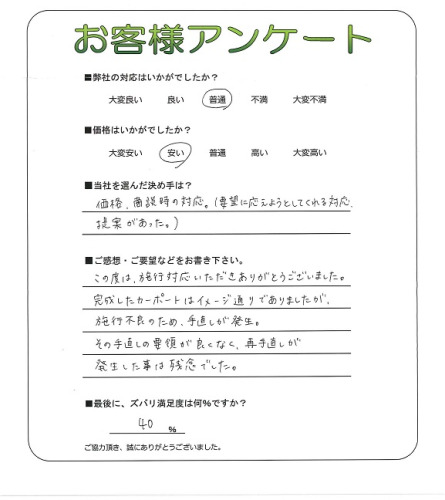 お客様アンケート
■弊社の対応はいかがでしたか？
大変良い 良い 普通 不満 大変不満
■価格はいかがでしたか？
大変安い 安い 普通 高い 大変高い
■当社を選んだ決め手は？
価格、商談時の対応。(要望に応えようとしてくれる対応、
提案があった。)
■ご感想・ご要望などをお書き下さい。
この度は、施行対応いただきありがとうございました。
完成したカーポートはイメージ通りでありましたが、
施行不良のため、手直しが発生。
その手直しの要領が良くなく、再手直しが
発生した事は残念でした。
■最後に、ズバリ満足度は何%ですか？
40 %
ご協力頂き、誠にありがとうございました。